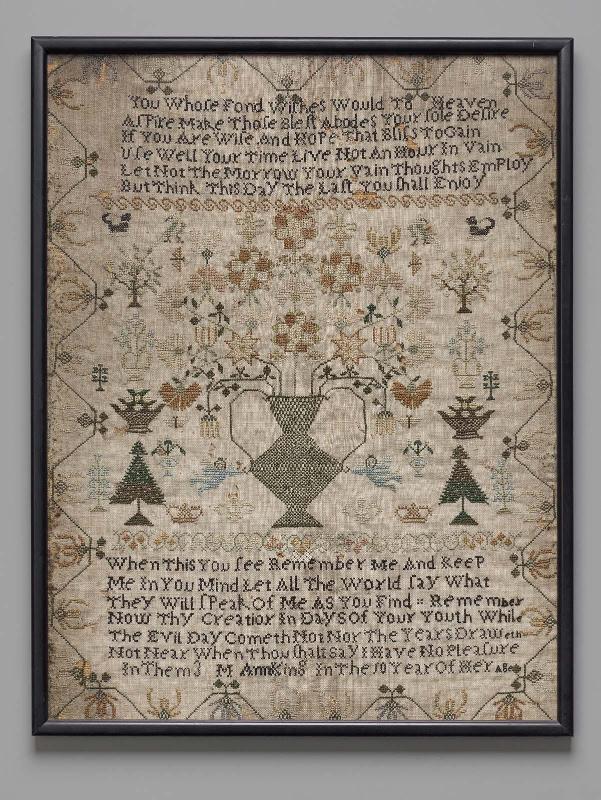 You Whose Fond Wishes Would To Heaven
Aspire Make Those Blest Abodes Your sole Desire
If You Are Wise And Hope That Bliss To Gain
Use Well Your Time Live Not An Hour In Vain
Let Not The Morrow Your Vain Thoughts Employ
But Think This Day The Last You shall Enjoy
When This You see Remember Me And Keep
Me In You Mind Let All The World say What
They Will speak Of Me As You Find = Remember
Now Thy Creatior In Days Of Your Youth While
The Evil Day Cometh Not Nor The Years Draweth
Not Near When Thou shalt say I Have No Pleasure
In Them 3 M Ann King In The 10 Year Of Her Age